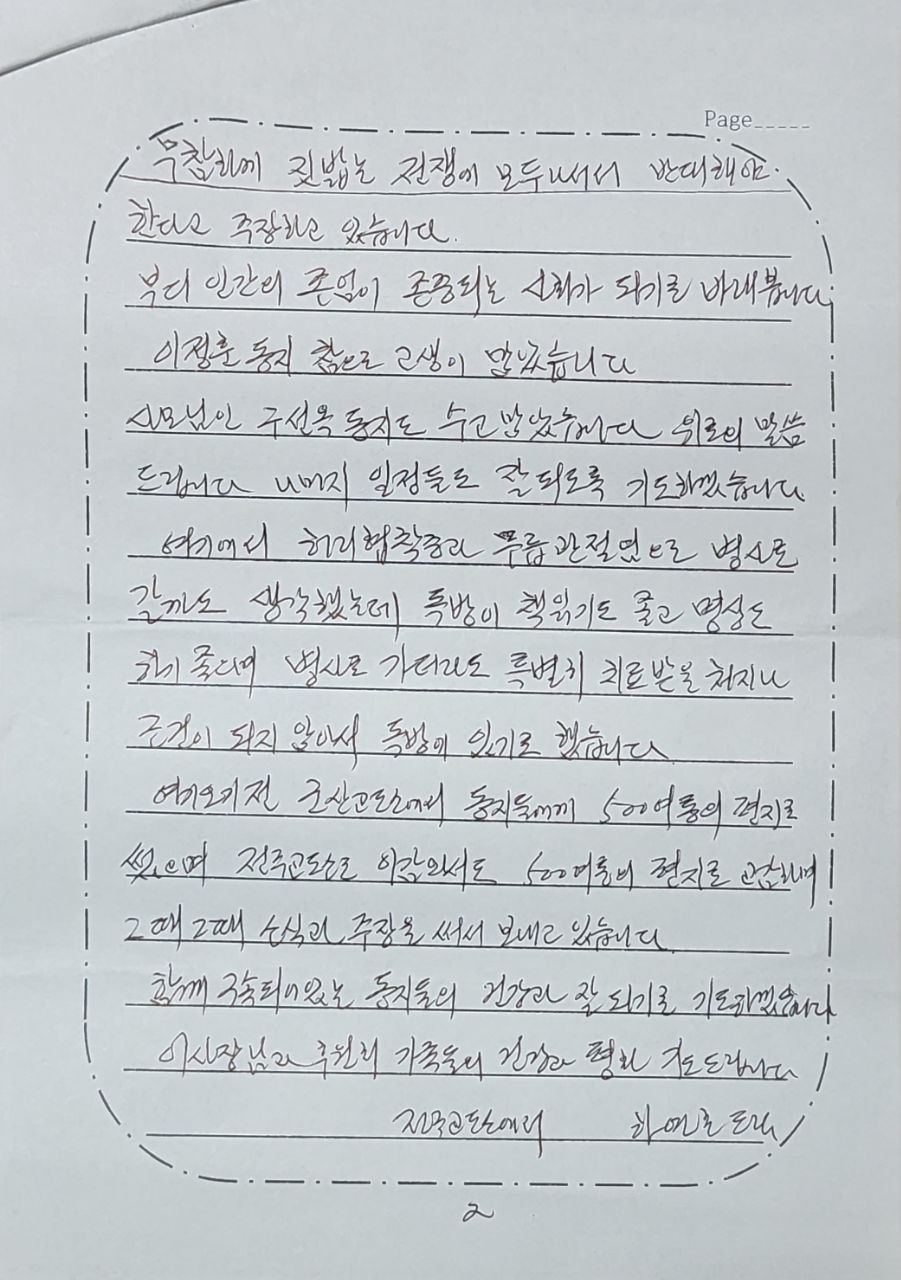 Page_____
무참하게 짓밟는 전쟁에 모두 나서서 반대해야
한다고 주장하고 있습니다.
부디 인간의 존엄이 존중되는 사회가 되기를 바래봅니다.
이정훈 동지 참으로 고생이 많았습니다
사모님인 구선옥 동지도 수고 많았습니다 위로의 말씀
드립니다 나머지 일정들도 잘 되도록 기도하겠습니다
여기에서 허리협착증과 무릎관절염으로 병사로
갈까도 생각했는데 독방이 책읽기도 좋고 명상도
하기 좋다며 병사로 가더라도 특별히 치료받을 처지나
조건이 되지 않아서 독방에 있기로 했습니다
여기오기전 군산교도소에서 동지들에게 500여통의 편지를
썼으며 전주교도소로 이감와서도 500여통의 편지를 교감하며
그때그때 소식과 주장을 써서 보내고 있습니다
함께 구속되어있는 동지들의 건강과 잘 되기를 기도하겠습니다
이사장님과 후원회 가족들의 건강과 평화 기도드립니다
전주교도소에서 하연호 드림
2